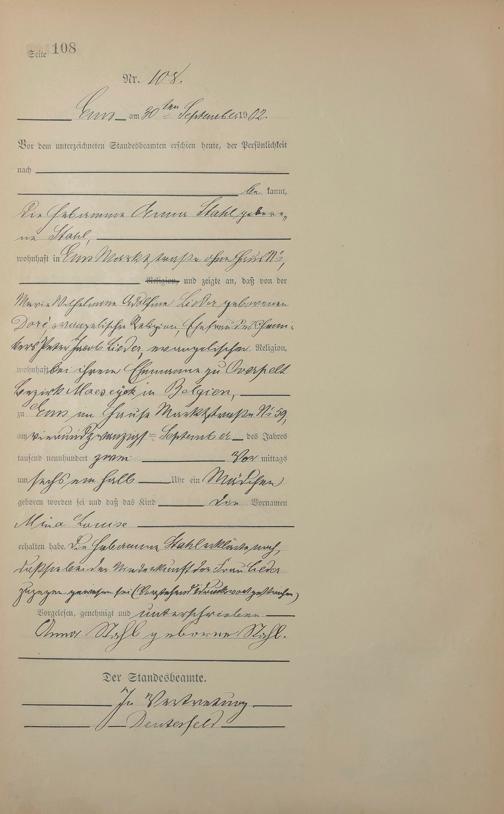 Seite 108
Nr. 108.
Ems am 30ten September 1902.
Vor dem unterzeichneten Standesbeamten erschien heute, der Persönlichkeit
nach
be kannt,
die Hebamme Anna Stahl gebore-
ne Stahl,
wohnhaft in Ems Marktstraße ohne Haus No,
Religion, und zeigte an, daß von der
Marie Wilhelmine Adolfine Lieder geborenen
Doré, evangelischer Religion, Ehefrau des
Peter Jacob Lieder, evangelischer Religion,
wohnhaft bei ihrem Ehemanne zu Overpelt
Bezirk Maeseyck in Belgien,
zu Ems im Hause Marktstraße No 59,
am vierundzwanzigsten September des Jahres
tausend neunhundert zwei Vor mittags
um sechs ein halb Uhr ein Mädchen
geboren worden sei und daß das Kind die Vornamen
Mina Louise
erhalten habe. Die Hebamme Stahl erklärte noch,
daß sie bei der Niederkunft der Frau Lieder
zugegen gewesen sei (Vorstehend 1 Druckwort gestrichen)
Vorgelesen, genehmigt und unterschrieben
Anna Stahl geborne Stahl.
Der Standesbeamte.
In Vertretung